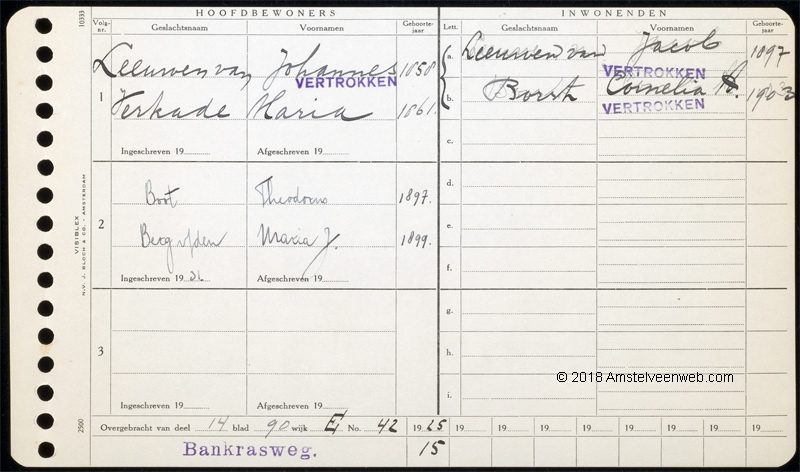 HOOFDBEWONERS
Volg-nr. Geslachtsnaam Voornamen Geboorte-jaar
Leeuwen van Johannes 1858
VERTROKKEN
1 Verkade Maria 1861.
Ingeschreven 19 Afgeschreven 19
Boot Theodorus 1897.
2 Berg v/den Maria J. 1899.
Ingeschreven 19 Afgeschreven 19
3
Ingeschreven 19 Afgeschreven 19
INWONENDEN
Lett. Geslachtsnaam Voornamen Geboorte-jaar
a. Leeuwen van Jacob 1897
VERTROKKEN
b. Cornelia 1903
VERTROKKEN
c.
d.
e.
f.
g.
h.
i.
© 2018 Amstelveenweb.com
Overgebracht van deel 14 blad 90 wijk E No. 42 19 25 19 19 19 19 19 19 19 19
Bankrasweg. 15
10333
VISIBLEX
N.V. J. BLOCH & CO. - AMSTERDAM
2500